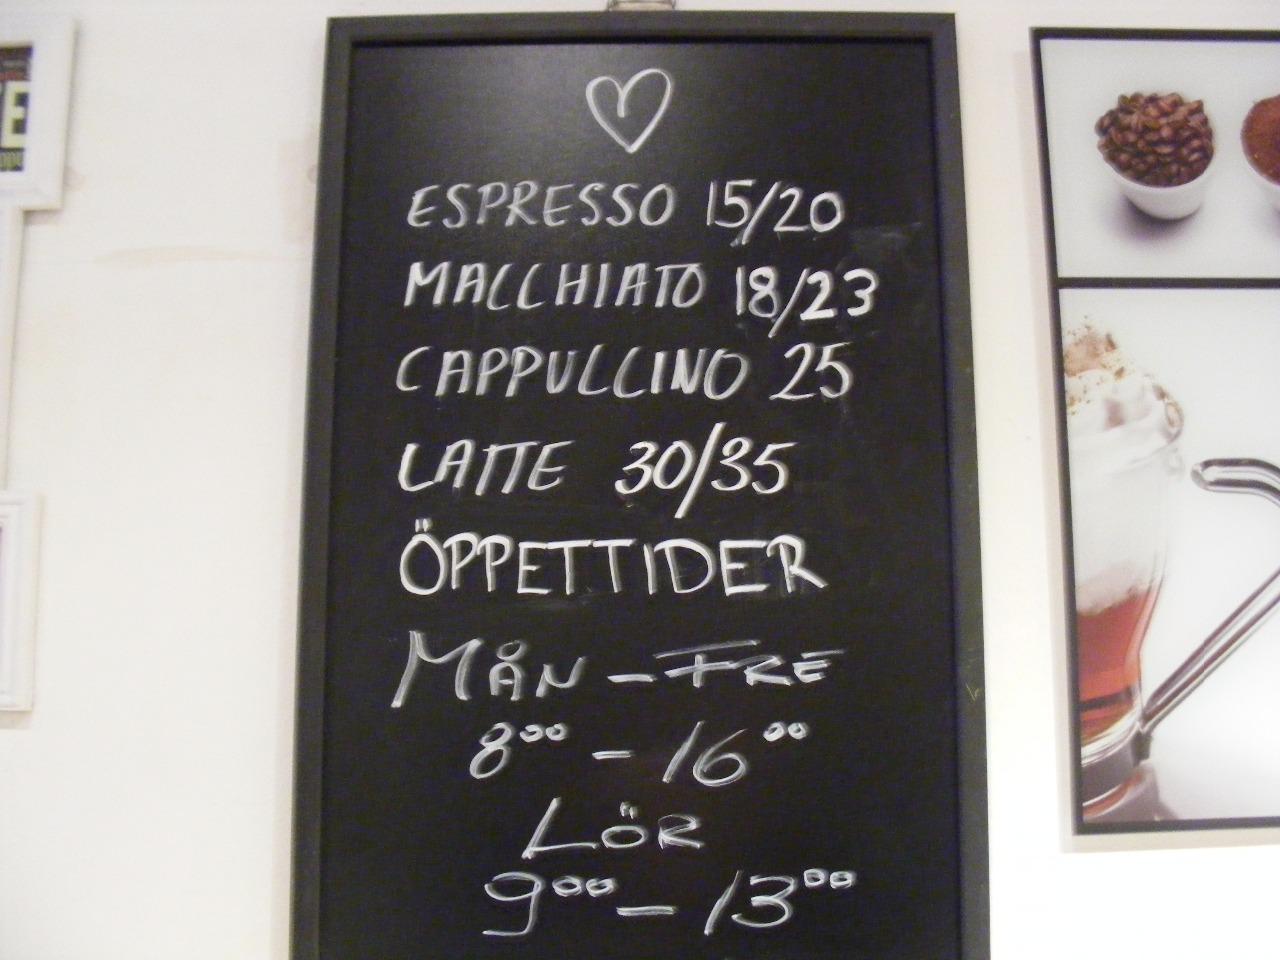 ESPRESSO 15/20
MACCHIATO 18/23
CAPPUCCINO 25
LATTE 30/35
ÖPPETTIDER
MÅN – FRE
8⁰⁰ – 16⁰⁰
LÖR
9⁰⁰ – 13⁰⁰